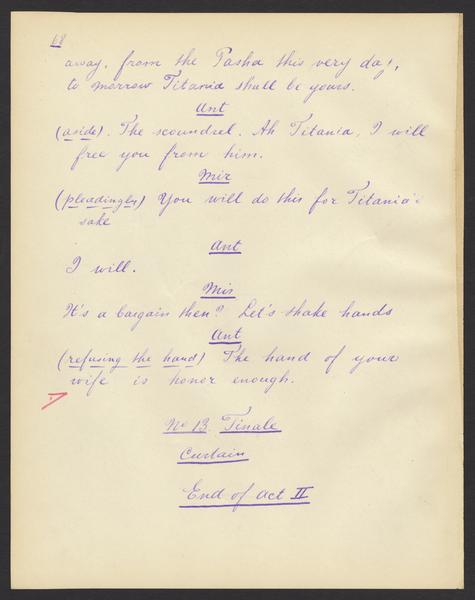 68
away, from the Pasha this very day,
to morrow Titania shall be yours.
Ant
(aside). The scoundrel. Ah Titania, I will
free you from him.
Mir
(pleadingly) You will do this for Titania's
sake
Ant
I will.
Mir
It's a bargain then? Let's shake hands
Ant
(refusing the hand) The hand of your
wife is honor enough.
No 13 Finale
Curtain
End of Act II